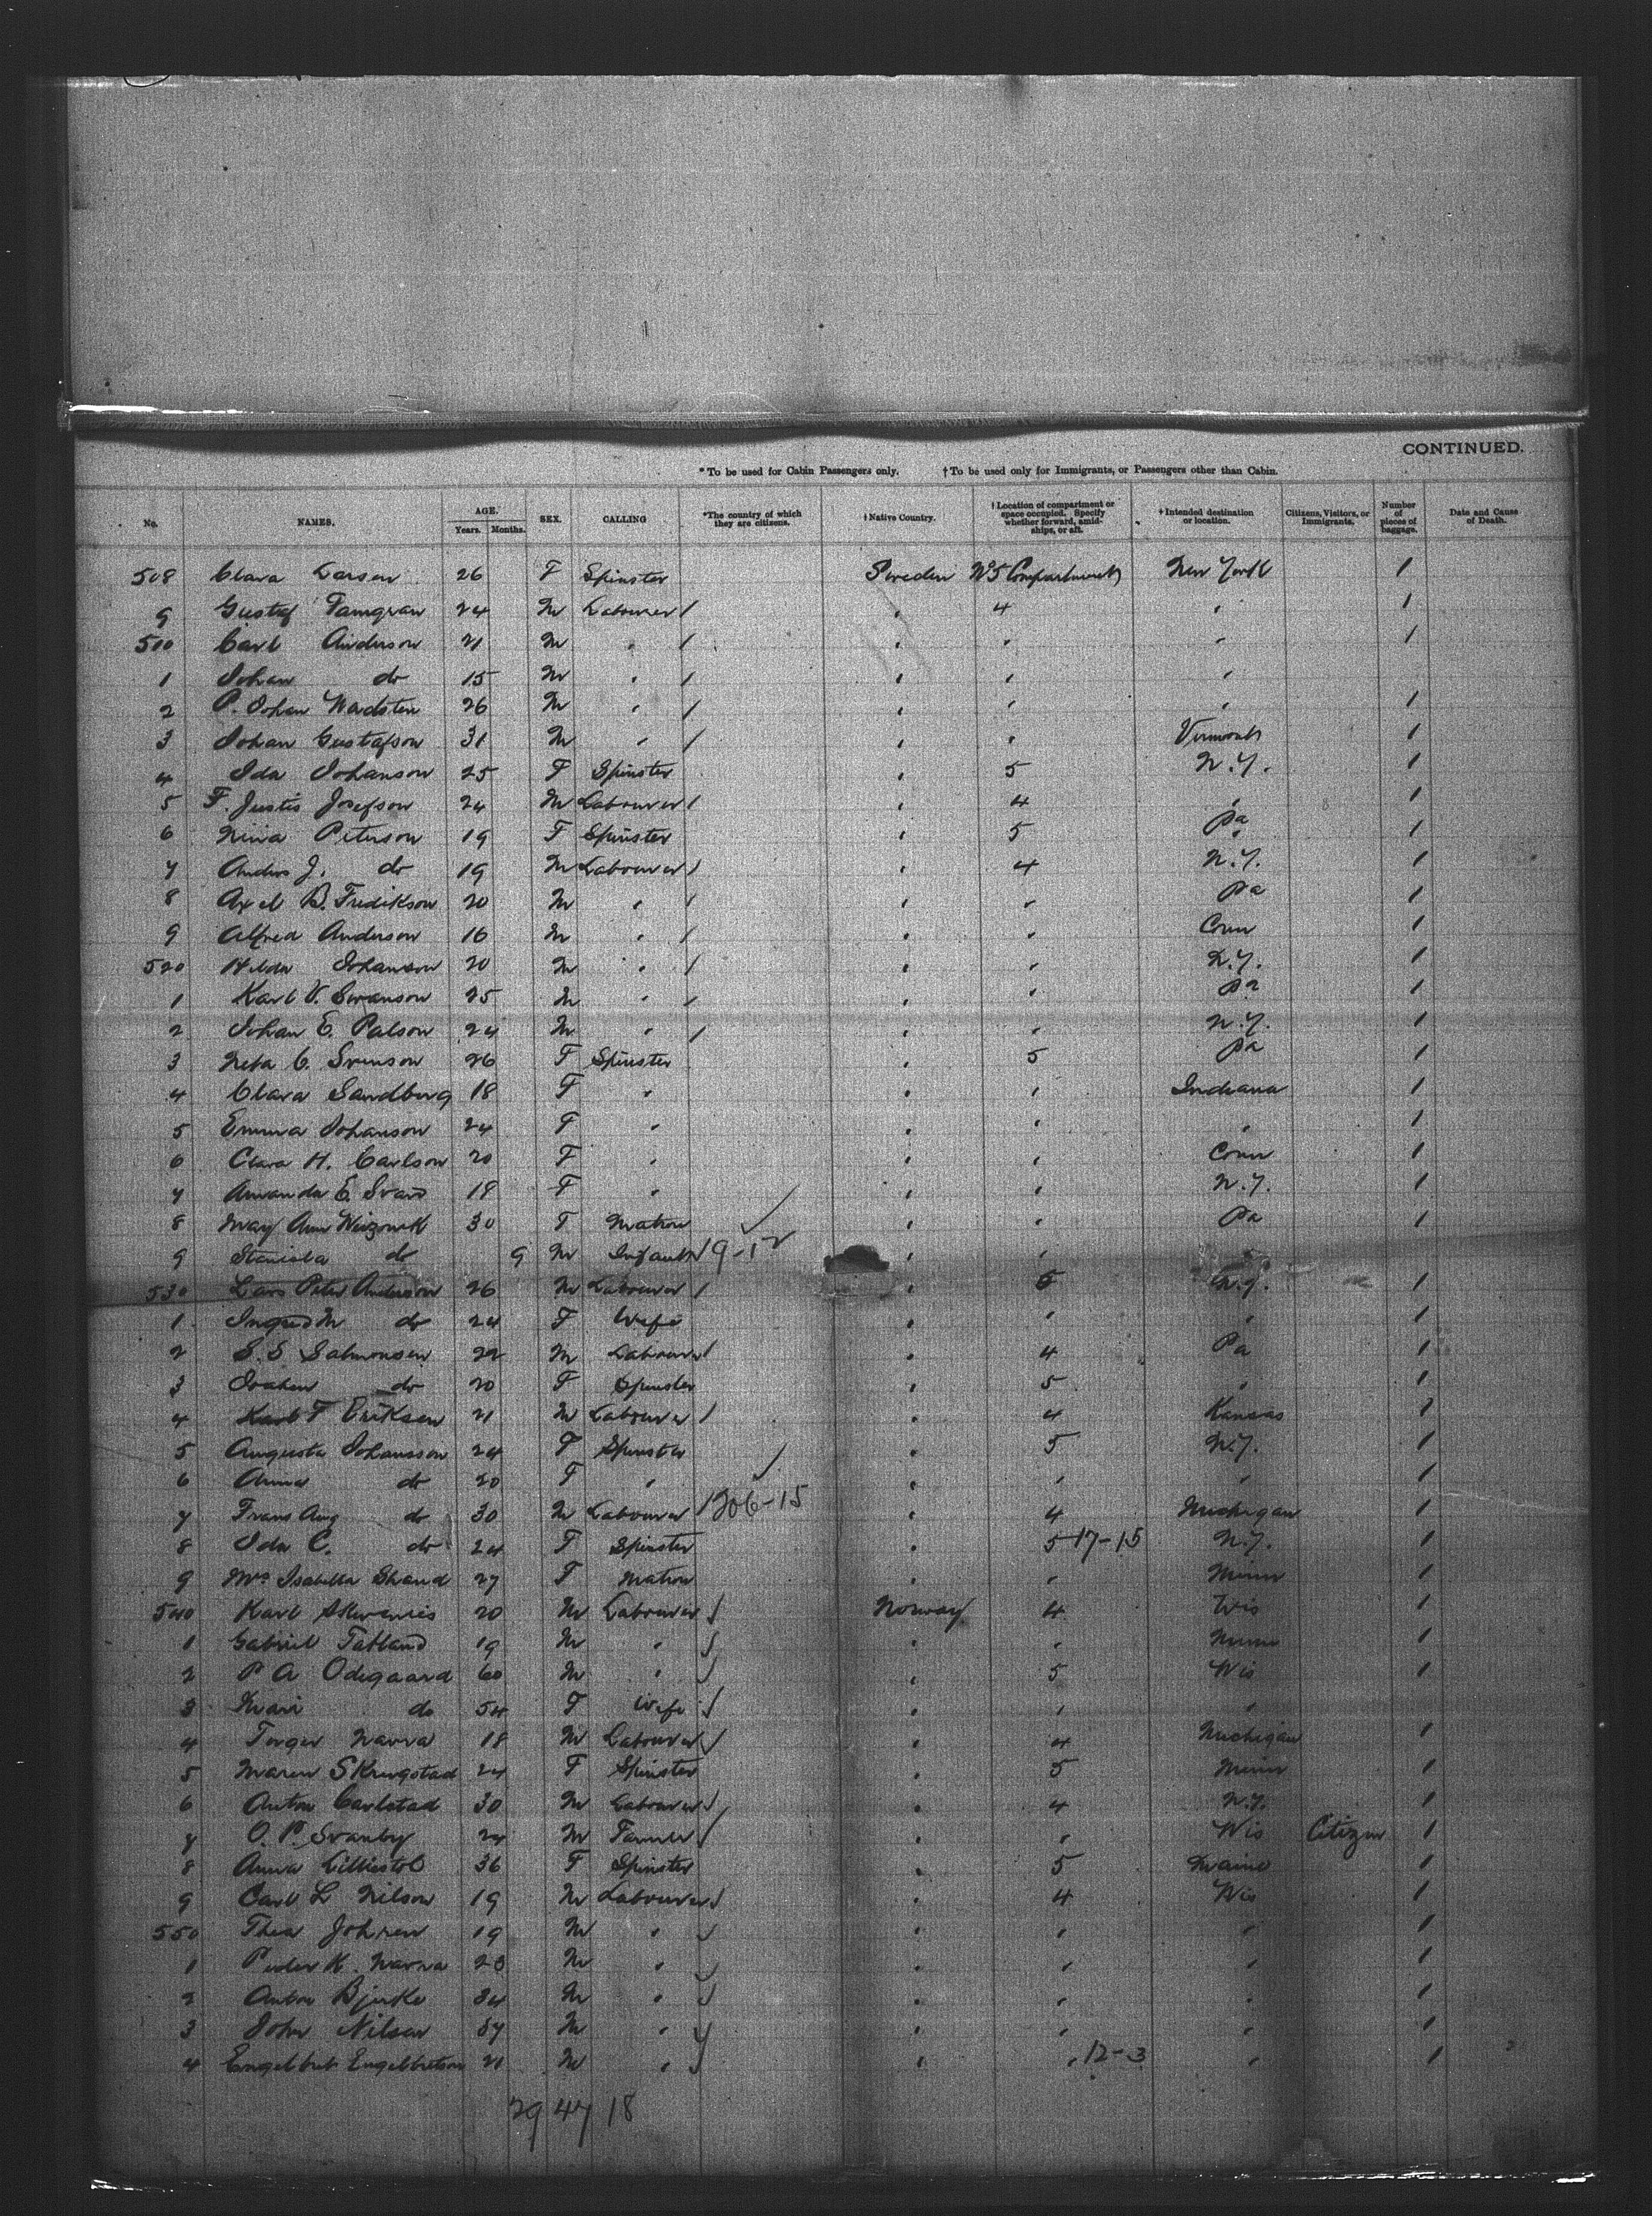 CONTINUED.
*To be used for Cabin Passengers only. †To be used only for Immigrants, or Passengers other than Cabin.
No. NAMES. AGE. Years. Months. SEX. CALLING *The country of which they are citizens. †Native Country. †Location of compartment or space occupied. Specify whether forward, amidships, or aft. †Intended destination or location. Citizens, Visitors, or Immigrants. Number of pieces of baggage. Date and Cause of Death.
508 Clara Larsen 26 F Spinster Sweden No 5 Compartment New York 1
9 Gustaf 24 M Labourer / " 4 " 1
510 Carl Anderson 21 M " / " " " 1
1 Johan do 15 M " / " " "
2 P. Johan Wadsten 26 M " / " " " 1
3 Johan Gustafson 31 M " / " " Vermont 1
4 Ida Johanson 25 F Spinster " 5 N.Y. 1
5 F. Justis Josefson 24 M Labourer / " 4 " 1
6 Peterson 19 F Spinster " 5 Pa 1
7 Anders J. do 19 M Labourer / " 4 N.Y. 1
8 Axel B. Fredikson 20 M " / " " Pa 1
9 Alfred Anderson 16 M " / " " Conn 1
520 Hilda Johanson 20 M " / " " N.Y. 1
1 Karl V. Swanson 25 M " / " " Pa 1
2 Johan E. Palson 24 M " / " " N.Y. 1
3 C. Svenson 26 F Spinster " 5 Pa 1
4 Clara Sandburg 18 F " " " Indiana 1
5 Emma Johanson 24 F " " " " 1
6 Clara H. Carlson 20 F " " " Conn 1
7 Amanda E. Svard 18 F " " " N.Y. 1
8 May Ann 30 F Matron " " Pa 1
9 Stanisla do 9 M Infant 9-12 " " "
530 Lars Peter Anderson 26 M Labourer / " 5 N.Y. 1
1 Ingrid M do 24 F Wife " " " 1
2 S. S Salmonsen 22 M Labourer / " 4 Pa 1
3 do 20 F Spinster " 5 " 1
4 Karl F Eriksen 21 M Labourer / " 4 Kansas 1
5 Augusta Johansson 24 F Spinster " 5 N.Y. 1
6 Anna do 20 F " " " " 1
7 Frans Aug do 30 M Labourer / 206-15 " 4 Michigan 1
8 Ida C. do 24 F Spinster " 5 17-15 N.Y. 1
9 Mrs Isabella Strand 27 F Matron " " Minn 1
540 Karl 20 M Labourer / Norway 4 Wis 1
1 Gabriel Tatland 19 M " / " " Minn 1
2 P A Odegaard 60 M " / " 5 Wis 1
3 Mari do 54 F Wife / " " "
4 Torger Narva 18 M Labourer / " 4 Michigan 1
5 Maren Skrugstad 24 F Spinster " 5 Minn 1
6 Anton Carlstad 30 M Labourer / " 4 N.Y. 1
7 O. P. Svanby 24 M Farmer / " " Wis Citizen 1
8 Anna 36 F Spinster " 5 Maine 1
9 Carl L Nilson 19 M Labourer / " 4 Wis 1
550 Thea Johnsen 19 M " / " " " 1
1 Peder K. Narva 23 M " / " " " 1
2 Anton Bjerke 34 M " / " " " 1
3 John Nilsen 37 M " / " " " 1
4 Engelbret Engelbretson 21 M " / " " 12-3 " 1
29 47 18